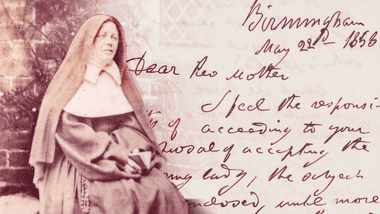 Birmingham
May 22nd 1856
Dear Rev Mother
I feel the responsi-
of according to your
of accepting the
lady, the subject
enclosed, until more